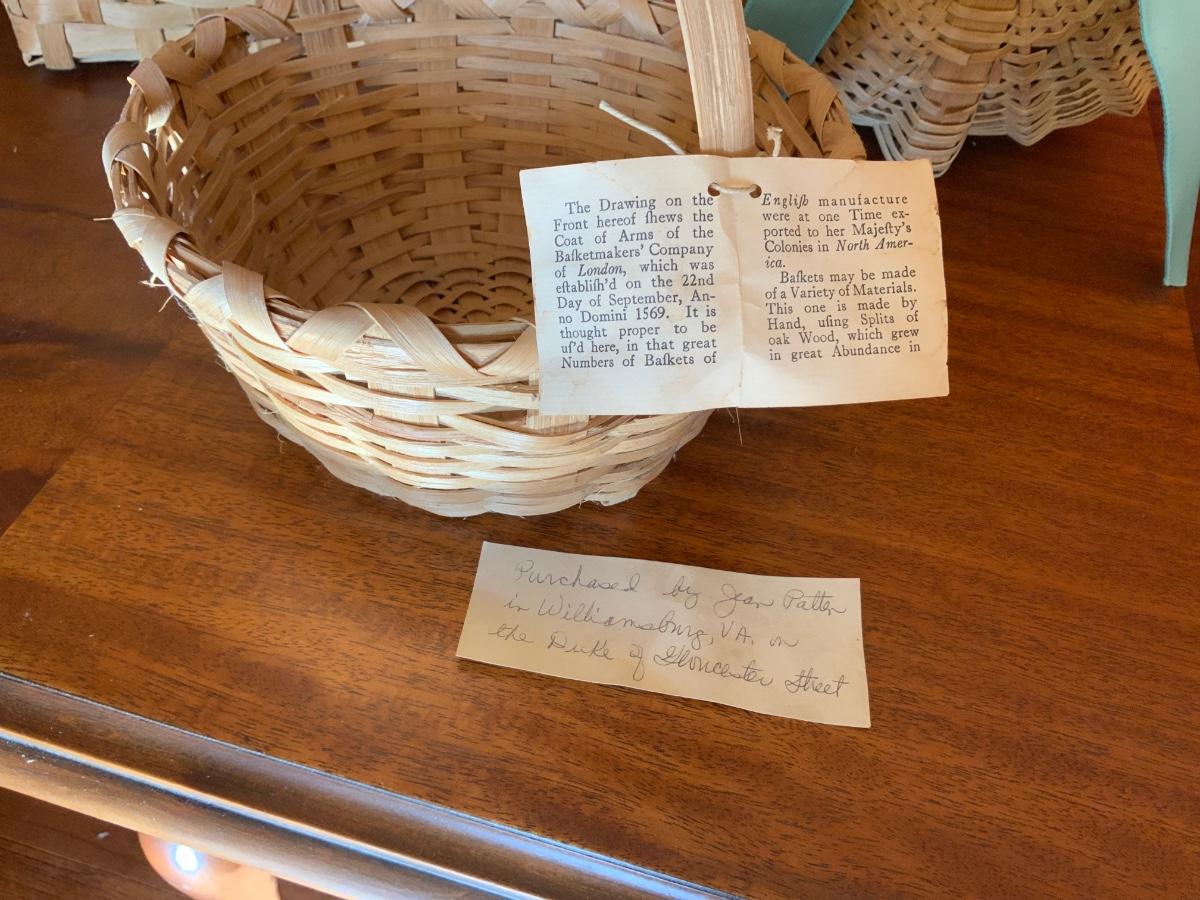 The Drawing on the
Front hereof ſhews the
Coat of Arms of the
Baſketmakers' Company
of London, which was
eſtabliſh'd on the 22nd
Day of September, An-
no Domini 1569. It is
thought proper to be
uſ'd here, in that great
Numbers of Baſkets of
Engliſh manufacture
were at one Time ex-
ported to her Majeſty's
Colonies in North Amer-
ica.
Baſkets may be made
of a Variety of Materials.
This one is made by
Hand, uſing Splits of
oak Wood, which grew
in great Abundance in
Purchased by Jean Patten
in Williamsburg, VA. on
the Duke of Gloucester Street